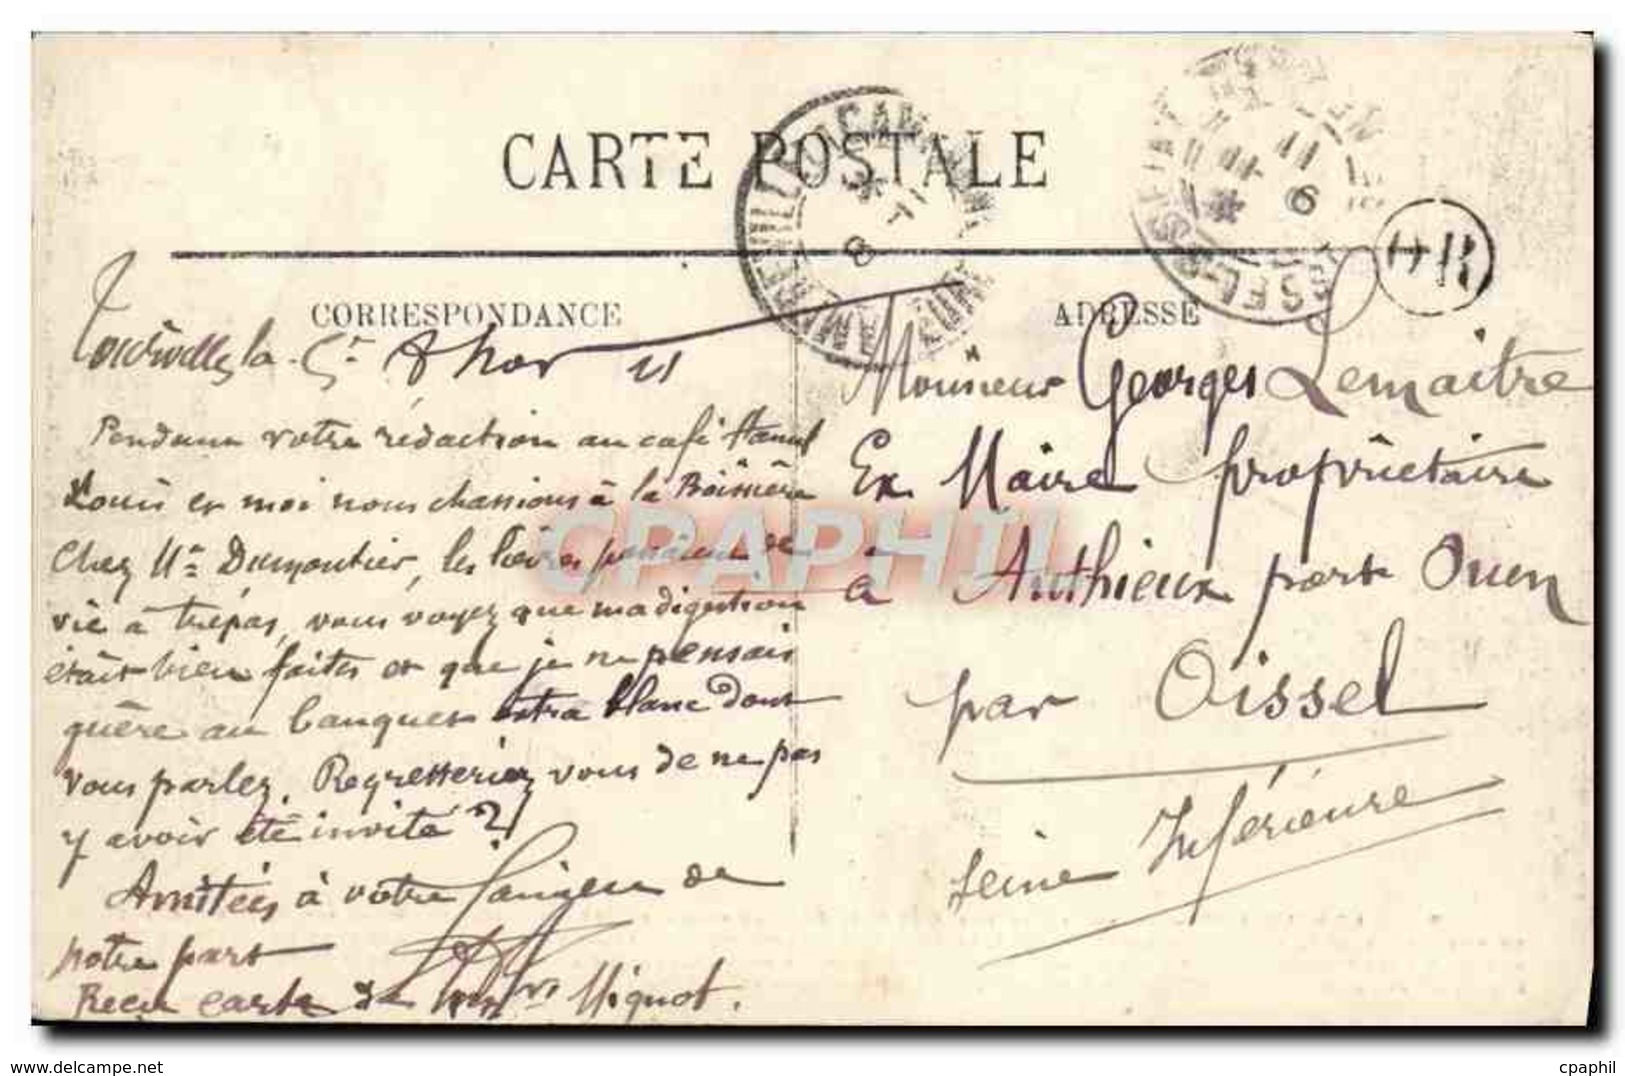 CARTE POSTALE
CORRESPONDANCE
ADRESSE
OR
Tourville la Cne 8 nov 11
Pendant votre rédaction au café
Louis et moi nous chassions à la Boissière
chez Mr Dumontier, les lièvres passaient de
vie à trépas, vous voyez que ma digestion
était bien faites et que je ne pensais
guère au banquet blanc dont
vous parlez. Regretteriez vous de ne pas
y avoir été invité ?
Amitiés à votre de
notre part
Reçu carte de Mignot.
Monsieur Georges Lemaitre
Ex Maire propriètaire
à Authieux port Ouen
par Oissel
Seine Inférieure
CPAPHIL
delcampe.net
cpaphil